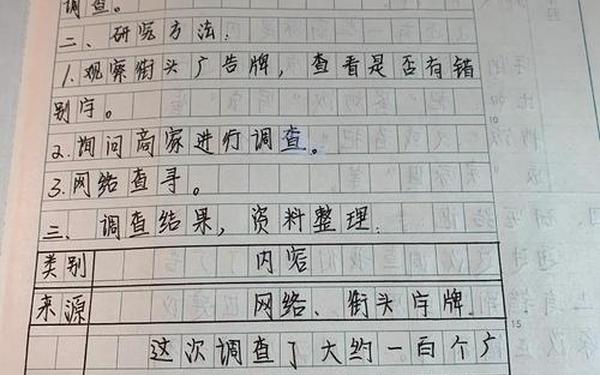 调查。
二、研究方法:
1.观察街头广告牌，查看是否有错
别字。
2.询问商家进行调查。
3.网络查寻。
三、调查结果，资料整理:
类别 内容
来源 网络、街头字牌
这次调查了大约一百个广
10
15